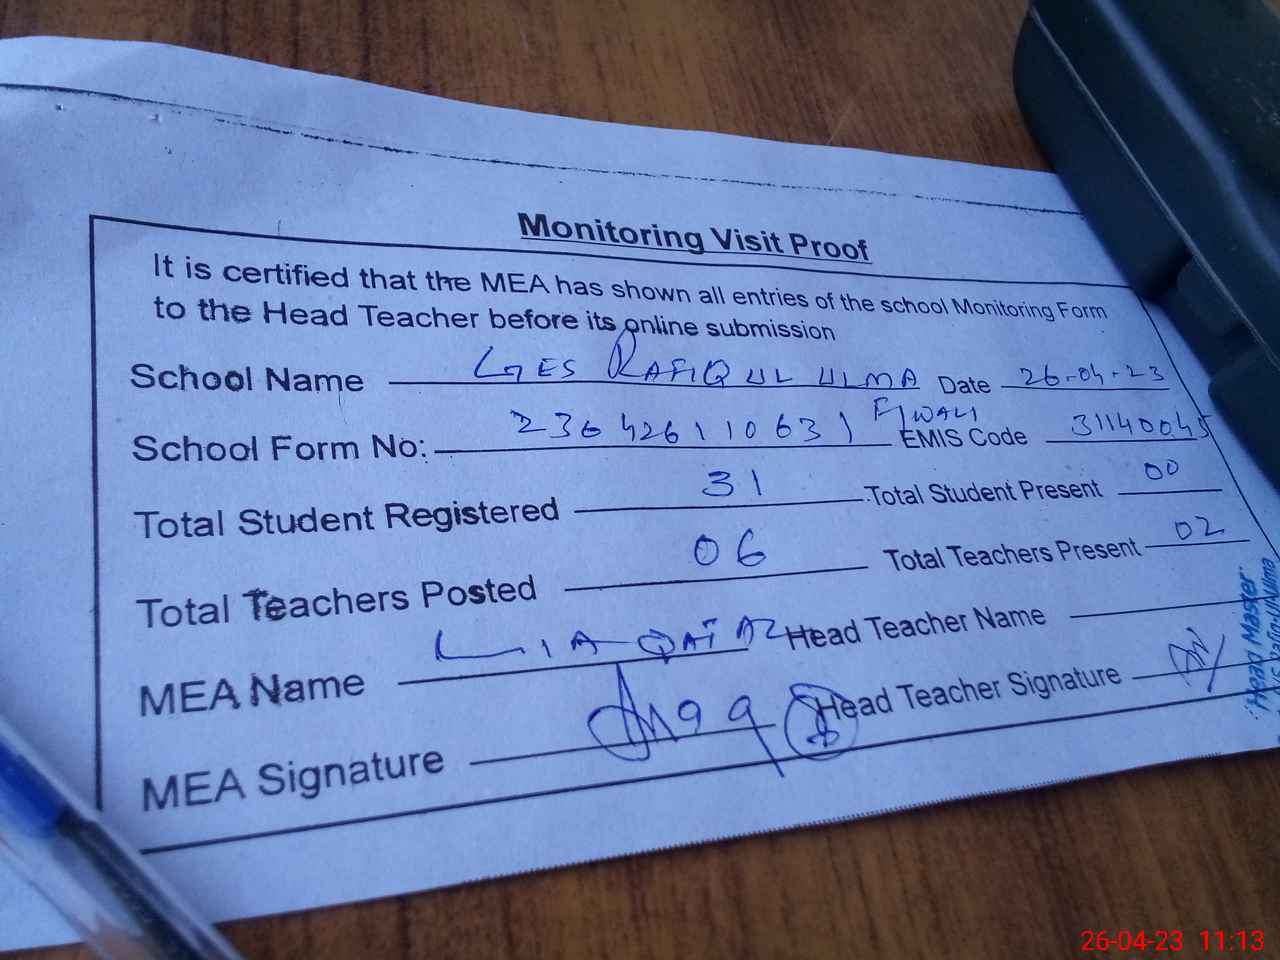 Monitoring Visit Proof
It is certified that the MEA has shown all entries of the school Monitoring Form
to the Head Teacher before its online submission
School Name GES RAFIQ UL ULMA Date 26-04-23
School Form No: 236426110631 EMIS Code 31140045
Total Student Registered 31 Total Student Present 00
Total Teachers Posted 06 Total Teachers Present 02
MEA Name LIAQAT AZ Head Teacher Name
MEA Signature Head Teacher Signature
Head Master
26-04-23 11:13